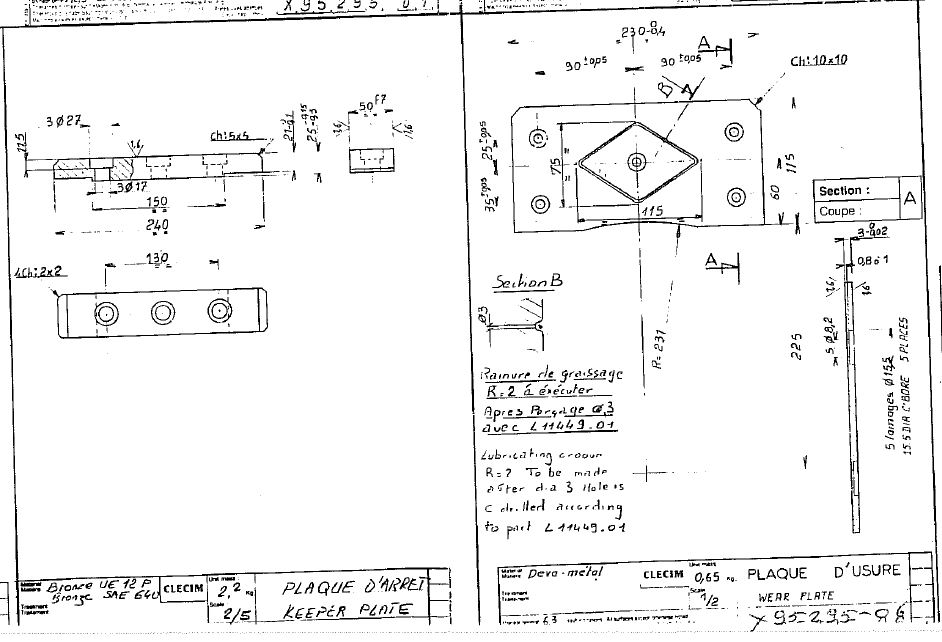 X95295.01
3Ø27
11,5
1,6
Ch:5x5
3Ø17
150
240
50 F7
1,6
1,6
130
4Ch:2x2
Material
Matière
Bronze UE 12 P
Bronze SAE 640
Treatment
Traitement
CLECIM
Unit mass
2,2 kg
Scale
2/5
PLAQUE D'ARRET
KEEPER PLATE
230-0,4
90±0,05
90±0,05
A
B
Ch:10x10
25±0,05
35±0,05
75
115
60
115
Section :
Coupe :
A
A
Section B
Ø3
R=231
225
3-0,02
0,8 à 1
1,6
1,6
5 Ø8,2
5 lamages Ø15,5
15.5 DIA C'BORE 5 PLACES
Rainure de graissage
R=2 à éxécuter
Apres Perçage Ø,3
avec L11449.01
Lubricating groove
R=2 To be made
after dia 3 Hole is
drilled according
to part L11449.01
Material
Matière
Deva-métal
Treatment
Traitement
CLECIM
Unit mass
0,65 kg.
Scale
1/2
PLAQUE D'USURE
WEAR PLATE
X95295-06